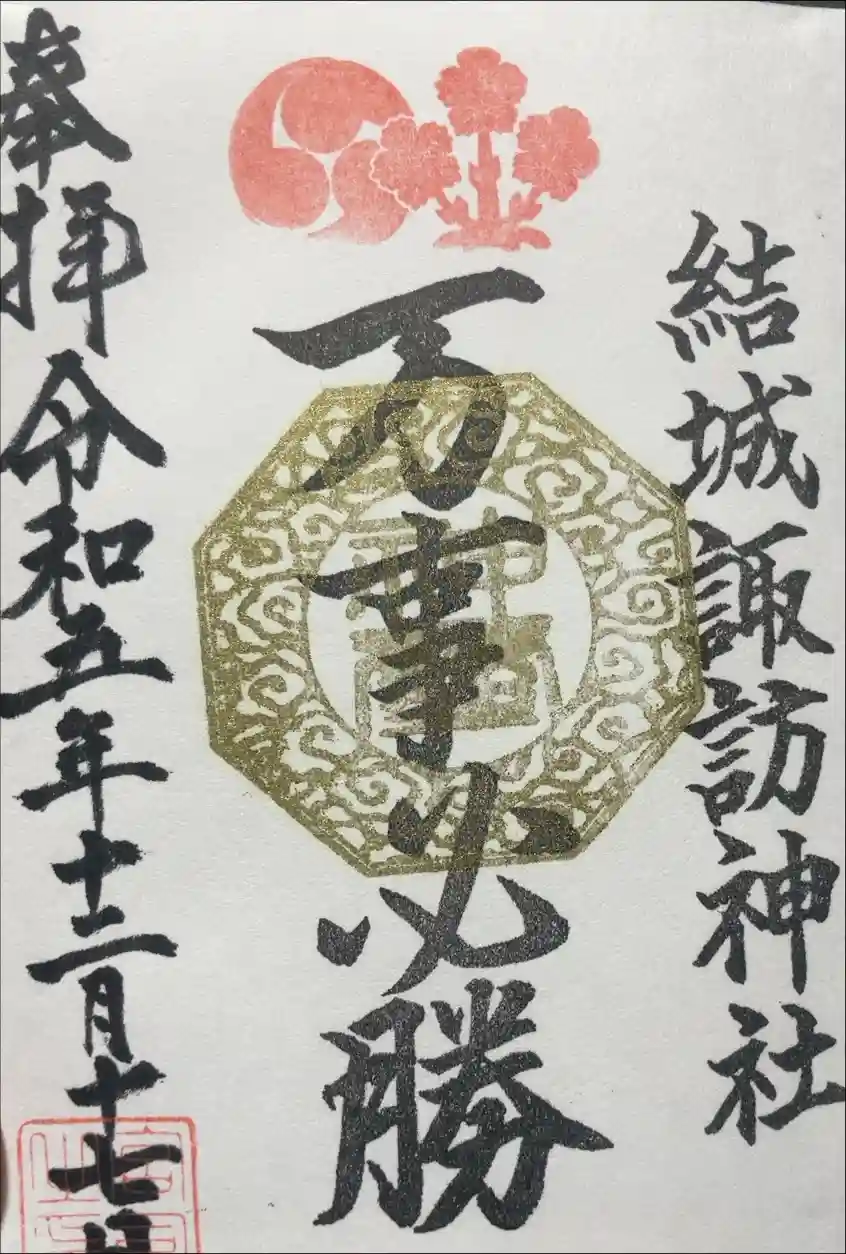 結城諏訪神社
万事必勝
奉拝 令和五年十二月十七日